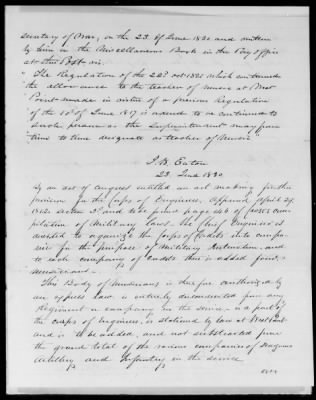 secretary of War, on the 23 of June 1830 and written
by him in the Miscellaneous Book in the Pay office
at this Post viz.
"The Regulation of the 22d Oct 1825 which continued
the allowance to the teacher of music at West
Point made in virtue of a previous Regulation
of the 10th of June 1817 is extended to & continued to
such person as the Superintendent may from
time to time designate as teacher of Music"
J. H. Eaton
23 June 1830
By an act of congress entitled an act making further
provision for the Corps of Engineers, approved April 29,
1812, section 3d and see page
compilation of Military Laws. The Chief Engineer is
directed to organize the Corps of Cadets into companies
for the purpose of Military Instruction, and
to each company of Cadets there is added four
musicians.
This Body of Musicians is therefore authorized by
an express law, is entirely disconnected from any
Regiment or company in the service, is a part of
the corps of engineers, is stationed by law at West Point
and is to be added, and not subtracted from
the grand total of the various companies of Dragoons
Artillery and Infantry in the service
over